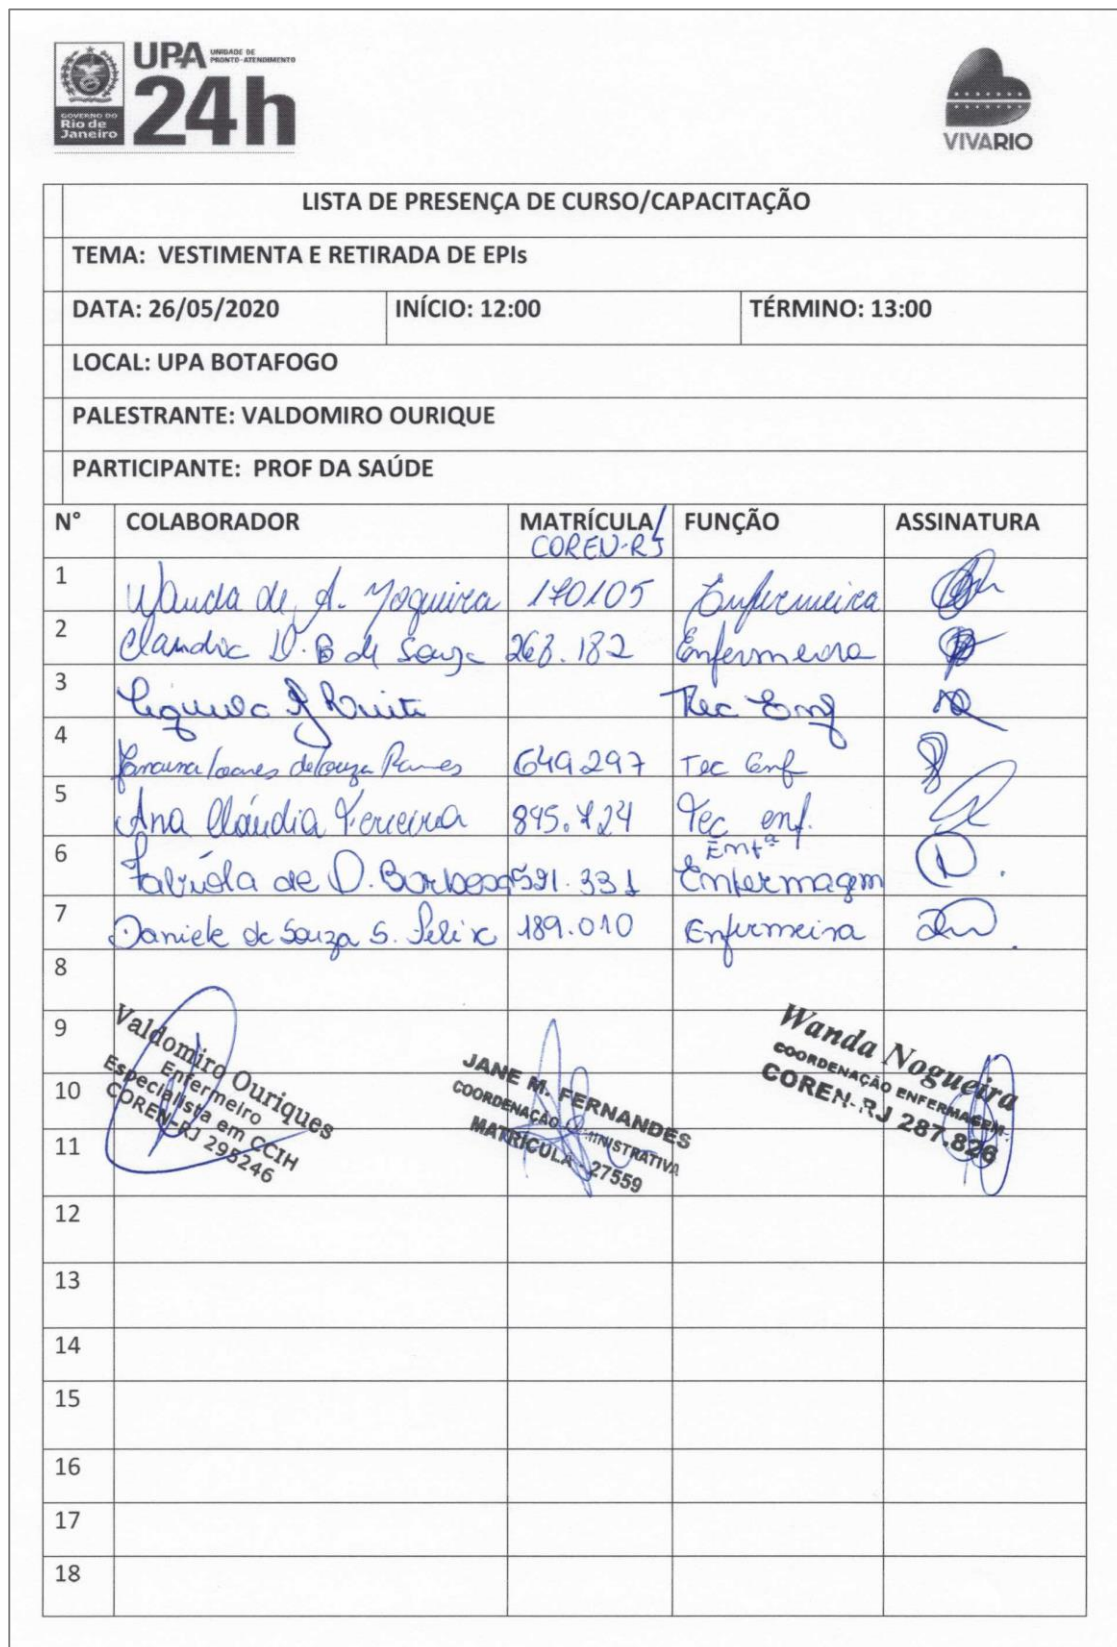 UPA UNIDADE DE PRONTO-ATENDIMENTO
24h
GOVERNO DO
Rio de
Janeiro
VIVARIO
LISTA DE PRESENÇA DE CURSO/CAPACITAÇÃO
TEMA: VESTIMENTA E RETIRADA DE EPIs
DATA: 26/05/2020 INÍCIO: 12:00 TÉRMINO: 13:00
LOCAL: UPA BOTAFOGO
PALESTRANTE: VALDOMIRO OURIQUE
PARTICIPANTE: PROF DA SAÚDE
N° COLABORADOR MATRÍCULA/ FUNÇÃO ASSINATURA
COREN-RJ
1 Wanda de A. Nogueira 170105 Enfermeira
2 Claudia D. B de Souza 268.182 Enfermeira
3 Tec Enf
4 de Souza Ramos 649.297 Tec Enf
5 Ana Cláudia Ferreira 845.724 Tec enf.
6 Fabíola de D. Barbosa 591.331 Enfª Enfermagem
7 Daniele de Souza S. Felix 189.010 Enfermeira
8
9
10
11
Valdomiro Ouriques
Enfermeiro
Especialista em CCIH
COREN-RJ 295246
JANE M. FERNANDES
COORDENAÇÃO ADMINISTRATIVA
MATRÍCULA - 27559
Wanda Nogueira
COORDENAÇÃO ENFERMAGEM
COREN-RJ 287.826
12
13
14
15
16
17
18